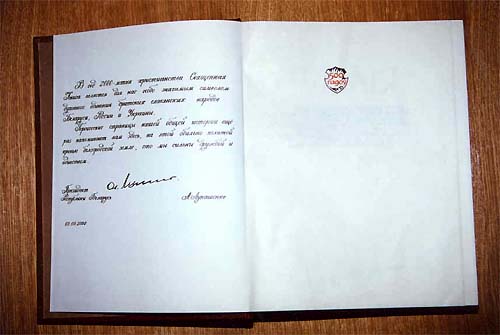 В год 2000-летия христианства Священная
Книга является для нас всех значимым символом
духовного единения братских славянских народов
Беларуси, России и Украины.
Героические страницы нашей общей истории еще
раз напоминают нам здесь, на этой обильно политой
кровью белгородской земле, что мы сильны дружбой и
единством.
Президент
Республики Беларусь
А.Лукашенко
03.05.2000
500
гадоў